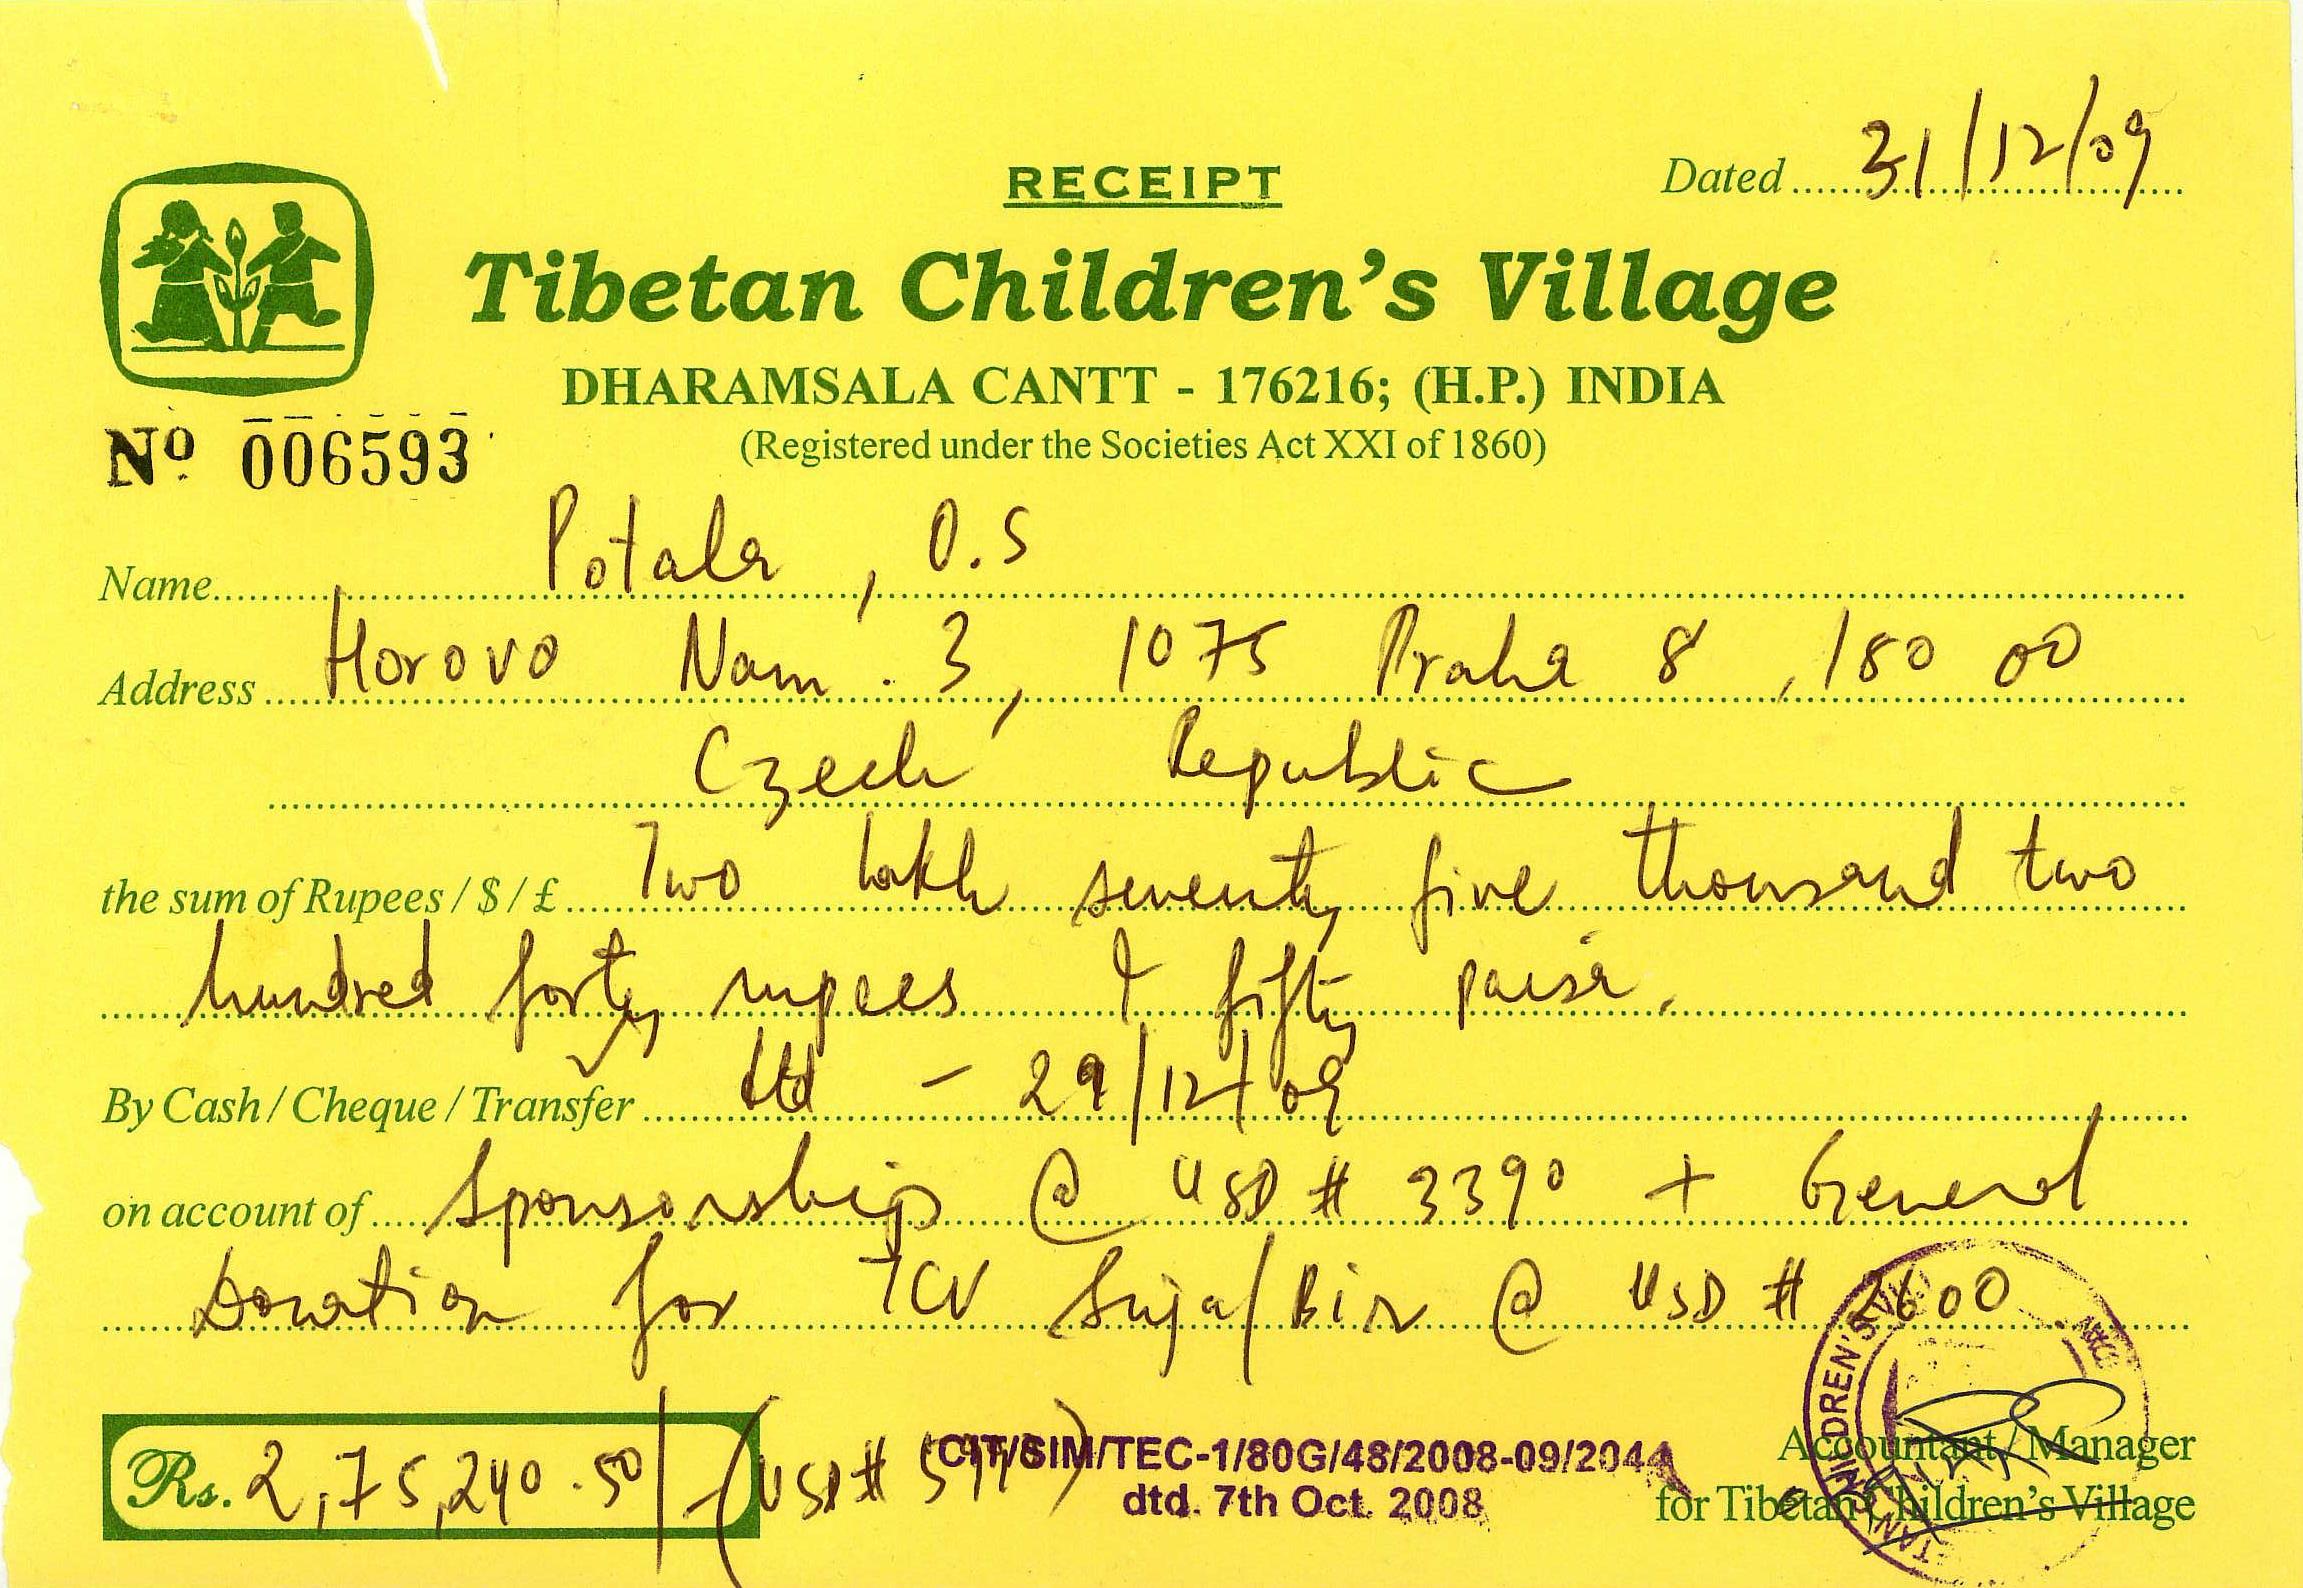 RECEIPT
Dated 31/12/09
Tibetan Children's Village
DHARAMSALA CANTT - 176216; (H.P.) INDIA
(Registered under the Societies Act XXI of 1860)
Nº 006593
Name Potala, O.S
Address Horovo Nam. 3, 1075 Praha 8, 180 00
Czech Republic
the sum of Rupees / $ / £ Two lakh seventy five thousand two
hundred forty rupees & fifty paisa.
By Cash / Cheque / Transfer dtd - 29/12/09
on account of Sponsorship @ USD # 3390 + General
Donation for TCV Suja/Bir @ USD # 2600
Rs. 2,75,240.50/- (USD #
CIT/SIM/TEC-1/80G/48/2008-09/2044
dtd. 7th Oct. 2008
Accountant / Manager
for Tibetan Children's Village